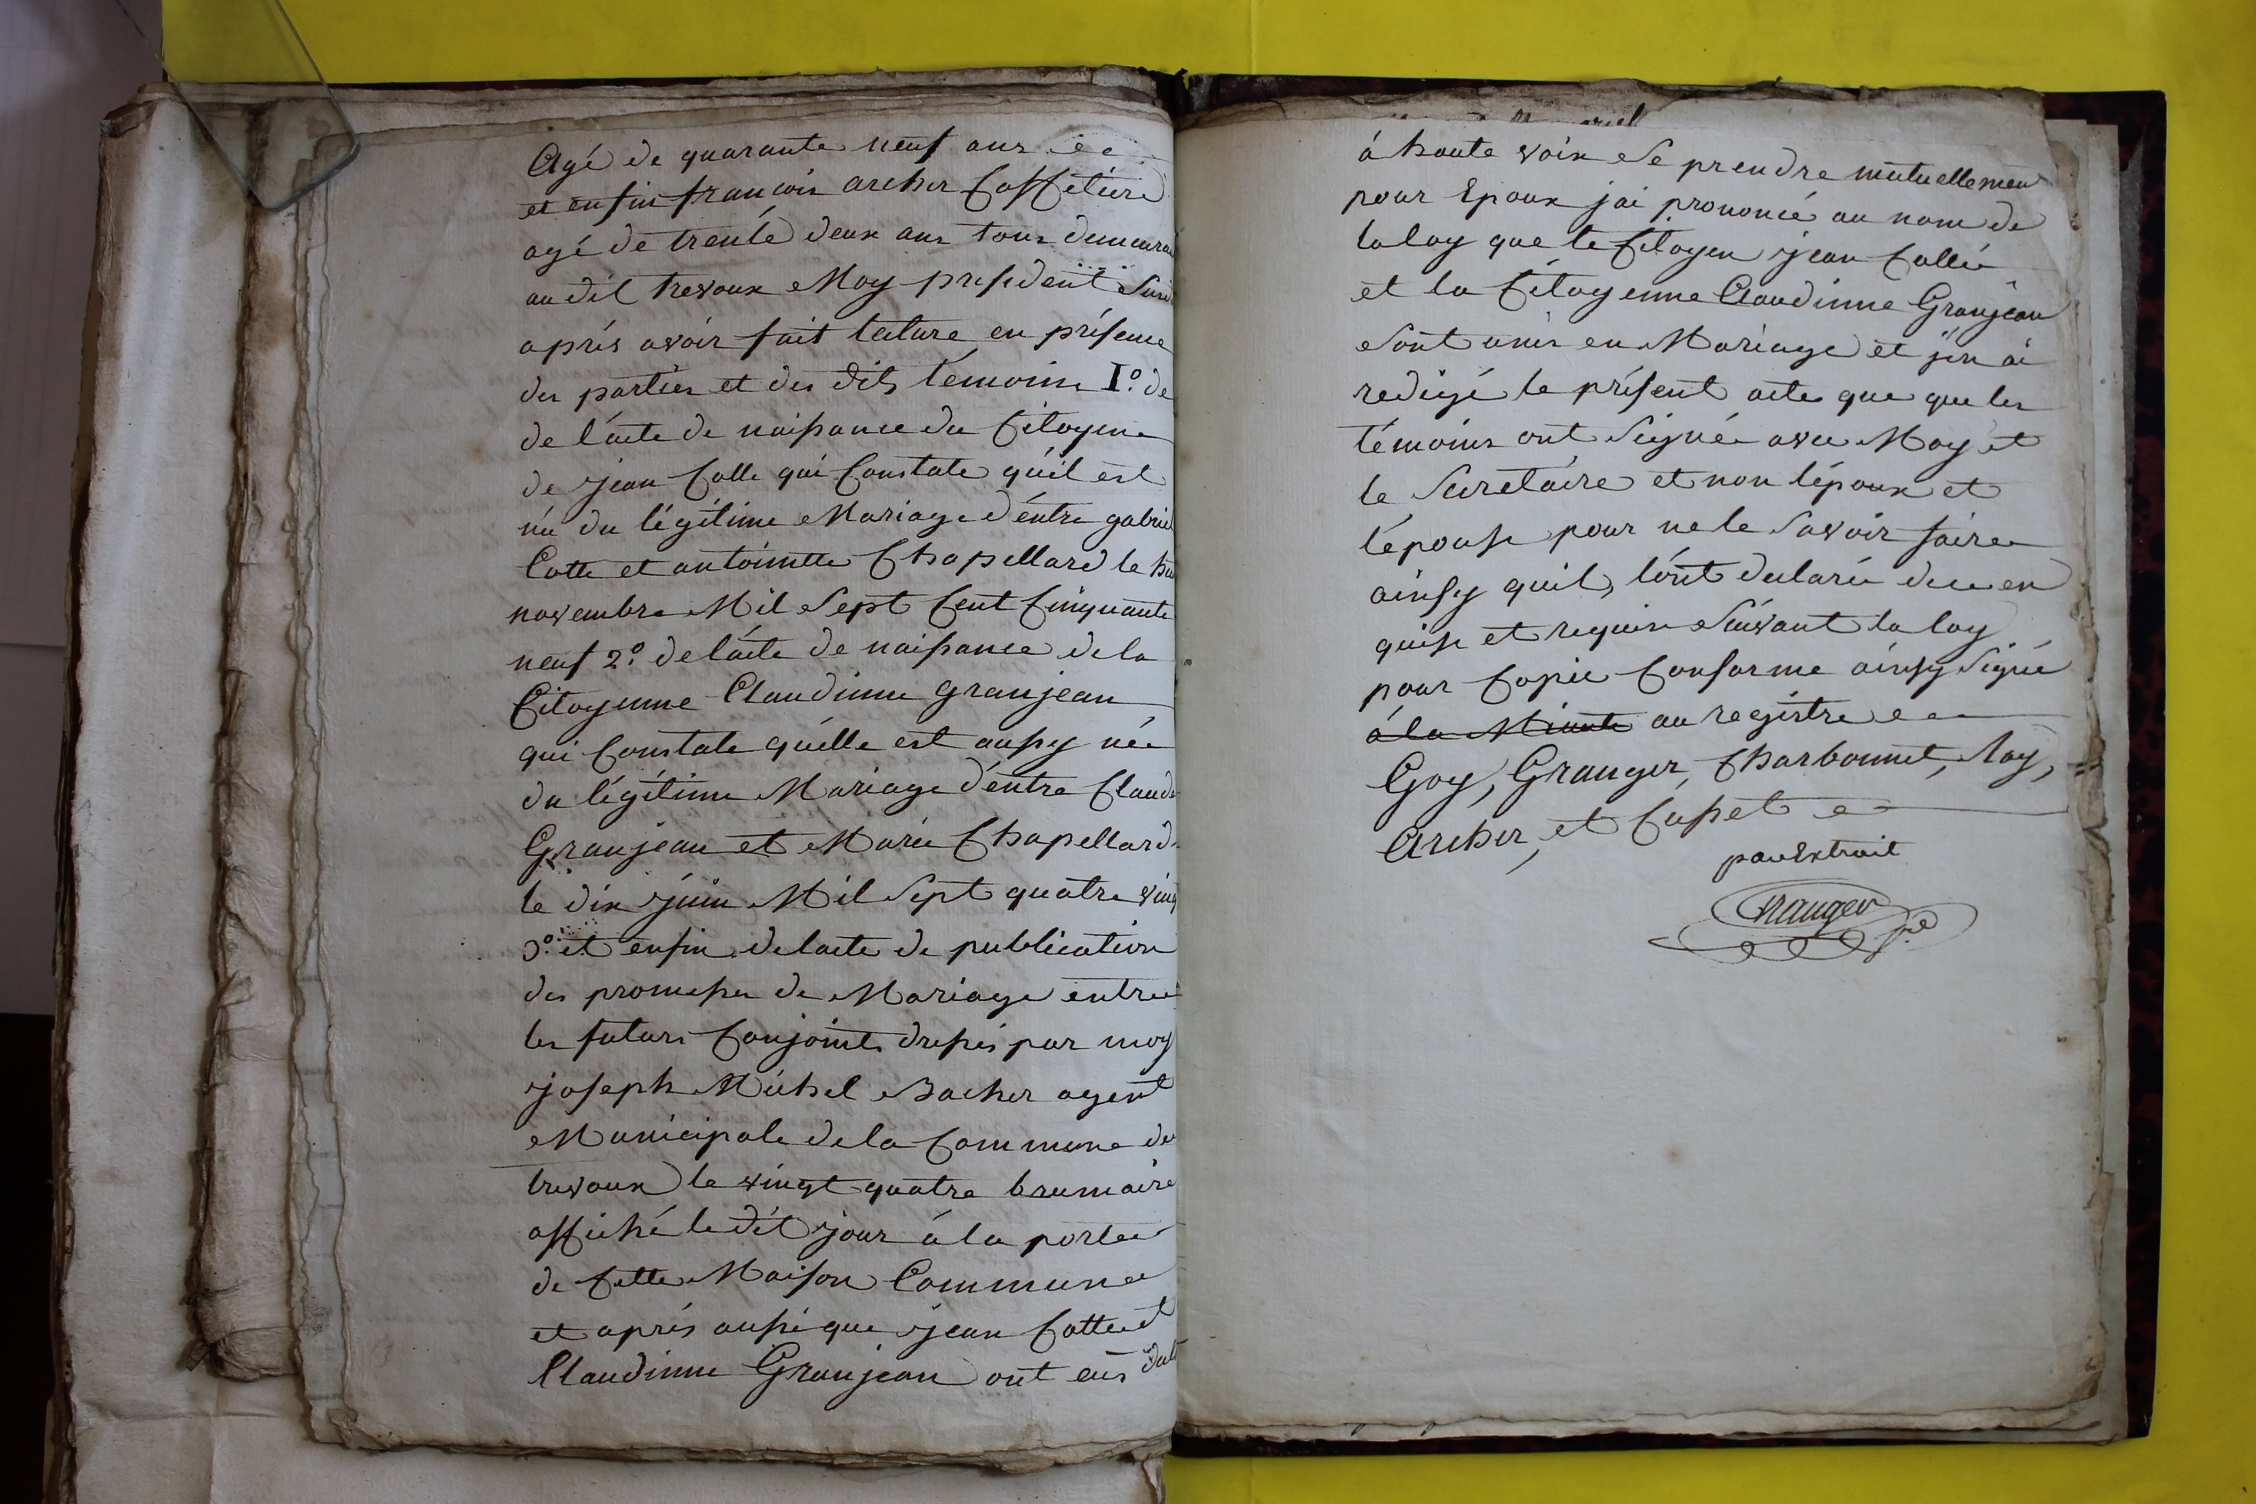 Agé de quarante neuf ans
et enfin françois archer Caffetier
agé de trente deux ans tous demeurant
au dit trevoux Moy president susd
après avoir fait lecture en présence
des parties et des dits témoins 1º. de
de l'acte de naissance du Citoyen
de jean Colle qui Constate qu'il est
né du légitime Mariage d'entre gabriel
Cotte et antoinette Chapellard le
novembre Mil Sept Cent Cinquante
neuf 2º. de l'acte de naissance de la
Citoyenne Claudinne granjean
qui Constate qu'elle est aussy née
du légitime Mariage d'entre Claude
Granjean et Marie Chapellard
le dix juin Mil Sept quatre vingt
3º. et enfin de lacte de publication
des promesses de Mariage entre
les futurs Conjoints dressés par moy
joseph Michel Bacher agent
Municipale de la Commune de
trevoux le vingt quatre brumaire
affiché le dit jour à la porte
de Cette Maison Commune
et après aussi que jean Cotte et
Claudinne Granjean ont eus
à haute voix se prendre mutuellement
pour Epoux jai prononcé au nom de
la loy que le Citoyen jean Collé
et la Citoyenne Claudinne Granjean
sont unis en Mariage et j'en ai
redigé le présent acte que que les
témoins ont signés avec Moy et
le Secretaire et non l'époux et
l'épouse pour ne le savoir faire
ainsy quils l'ont declaré de ce en
quise et requis suivant la loy
pour Copie Conforme ainsy signé
à la Minute au registre
Goy, Granger, Charbonnet, Roy,
Archer, et Capet
par Extrait
Granger